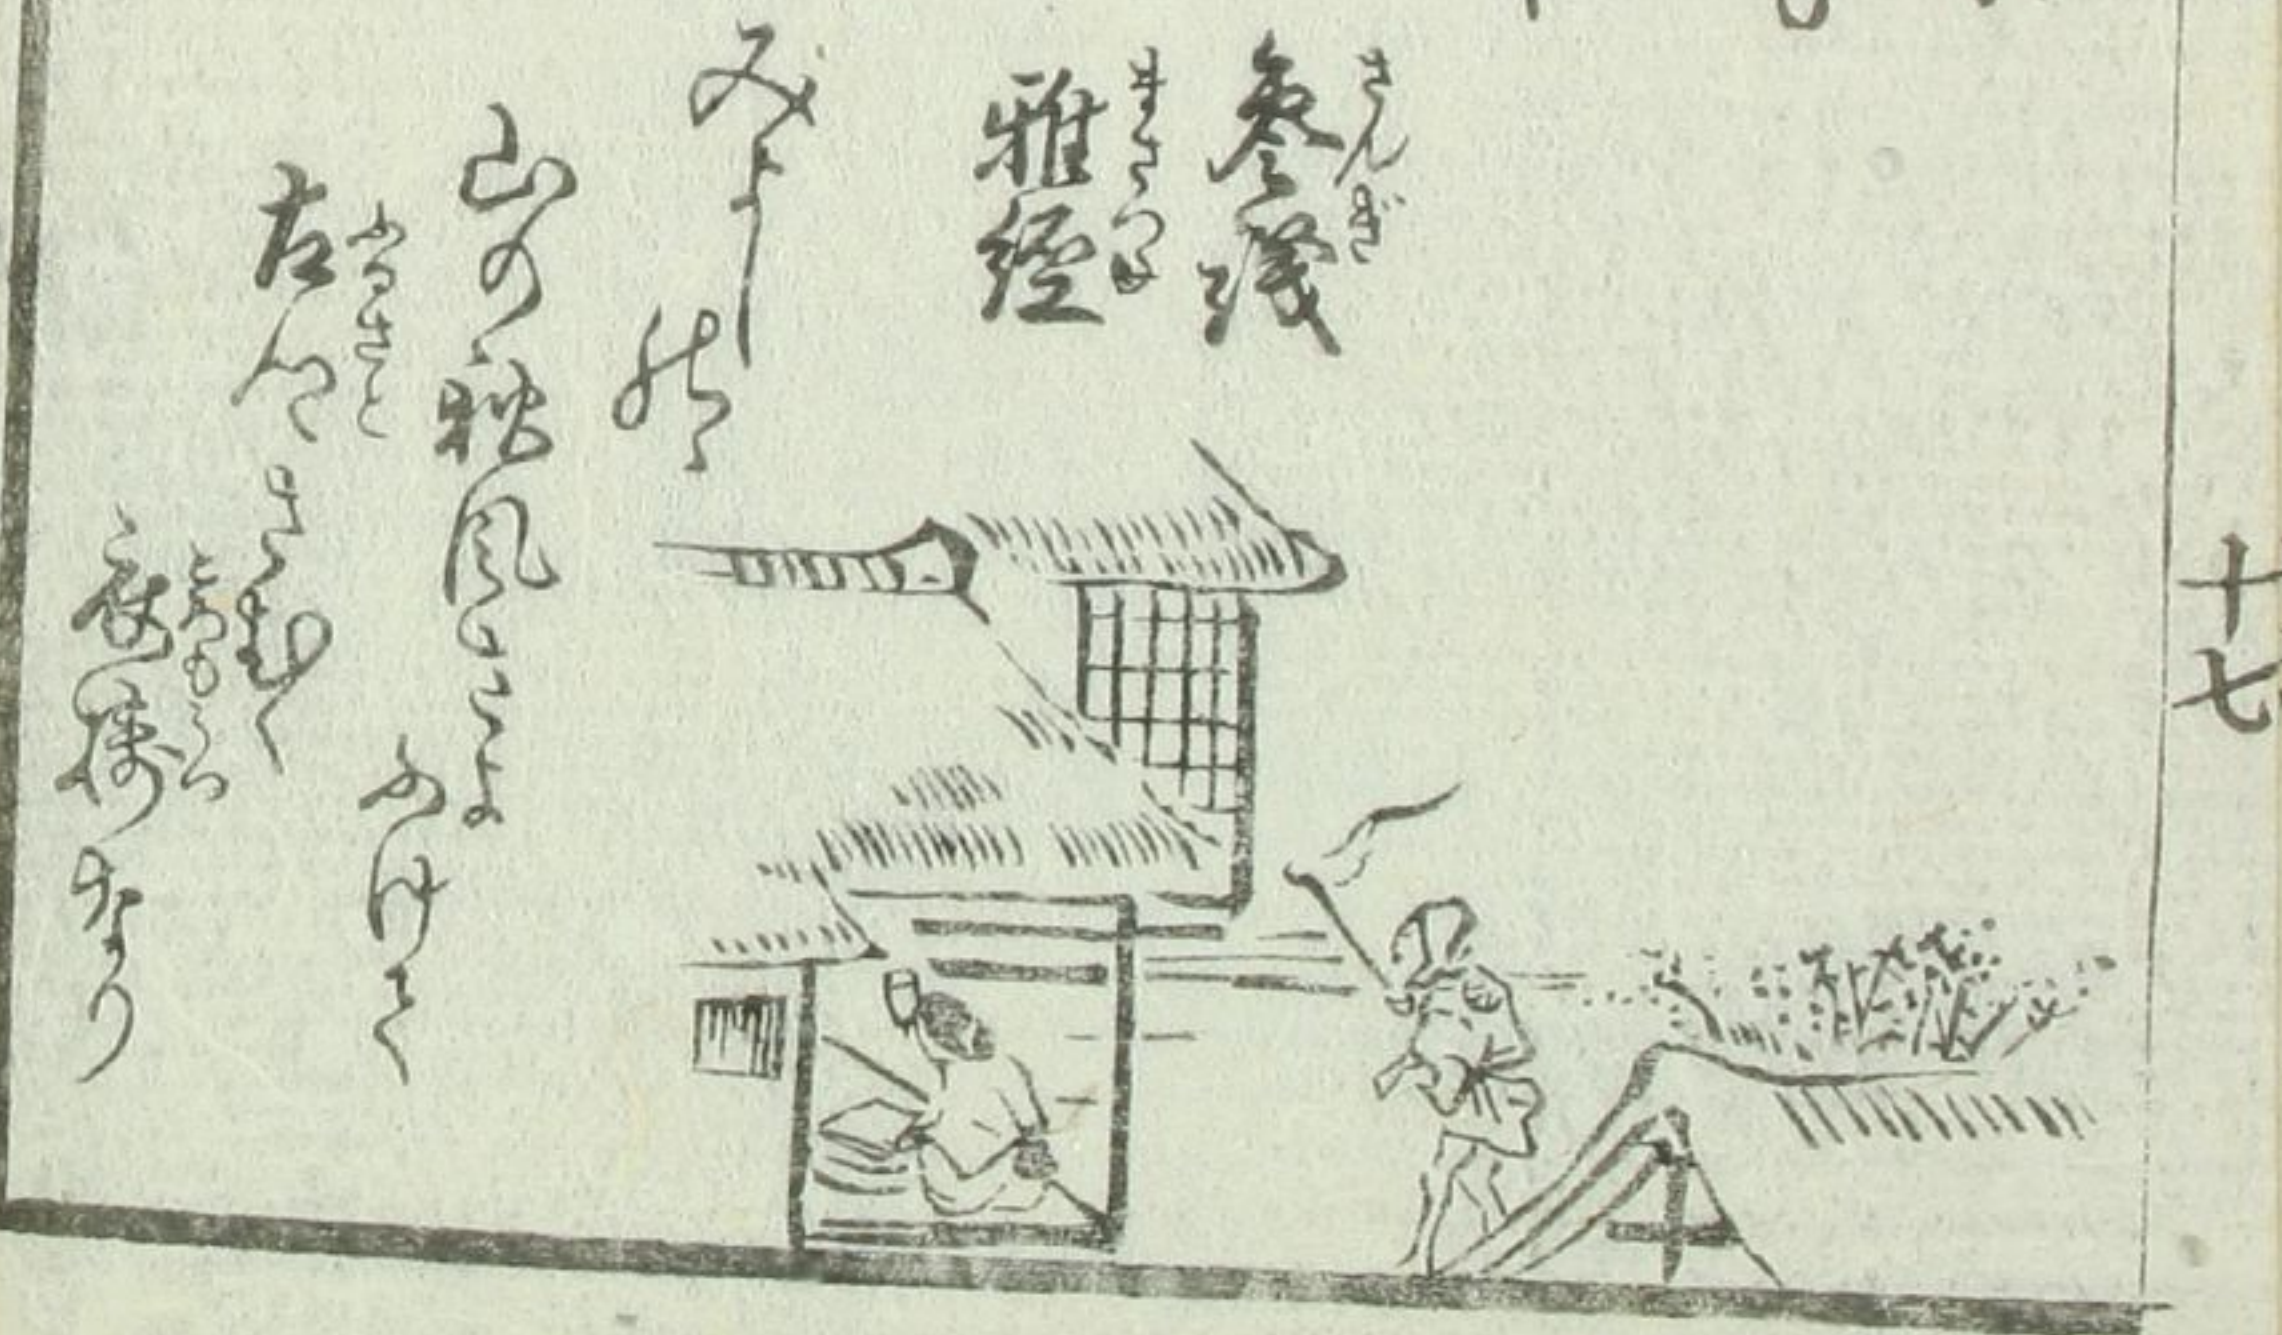 十七
さんぎ
参議
まさつね
雅経
みよし
のゝ
山の秋風さよ
ふけて
ふるさと
古郷さむく
ころもうつ
衣擣なり